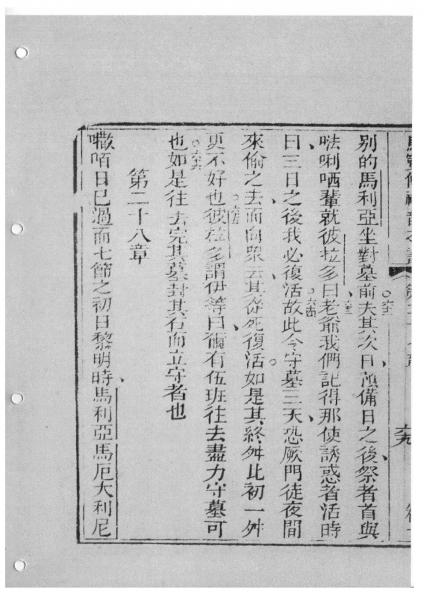 別的馬利亞坐對墓前夫其次日預備日之後祭者首與
㗭唎哂輩就彼拉多曰老爺我們記得那使誘惑者活時
曰三日之後我必復活故此令守墓三天恐厥門徒夜間
來偷之去而向眾云其從死復活如是其終舛比初一舛
更不好也彼拉多謂伊等曰爾有伍班往去盡力守墓可
也如是往去完其墓封其石而立守者也
第二十八章
㘔咟日已過而七節之初日黎明時馬利亞馬厄大利尼